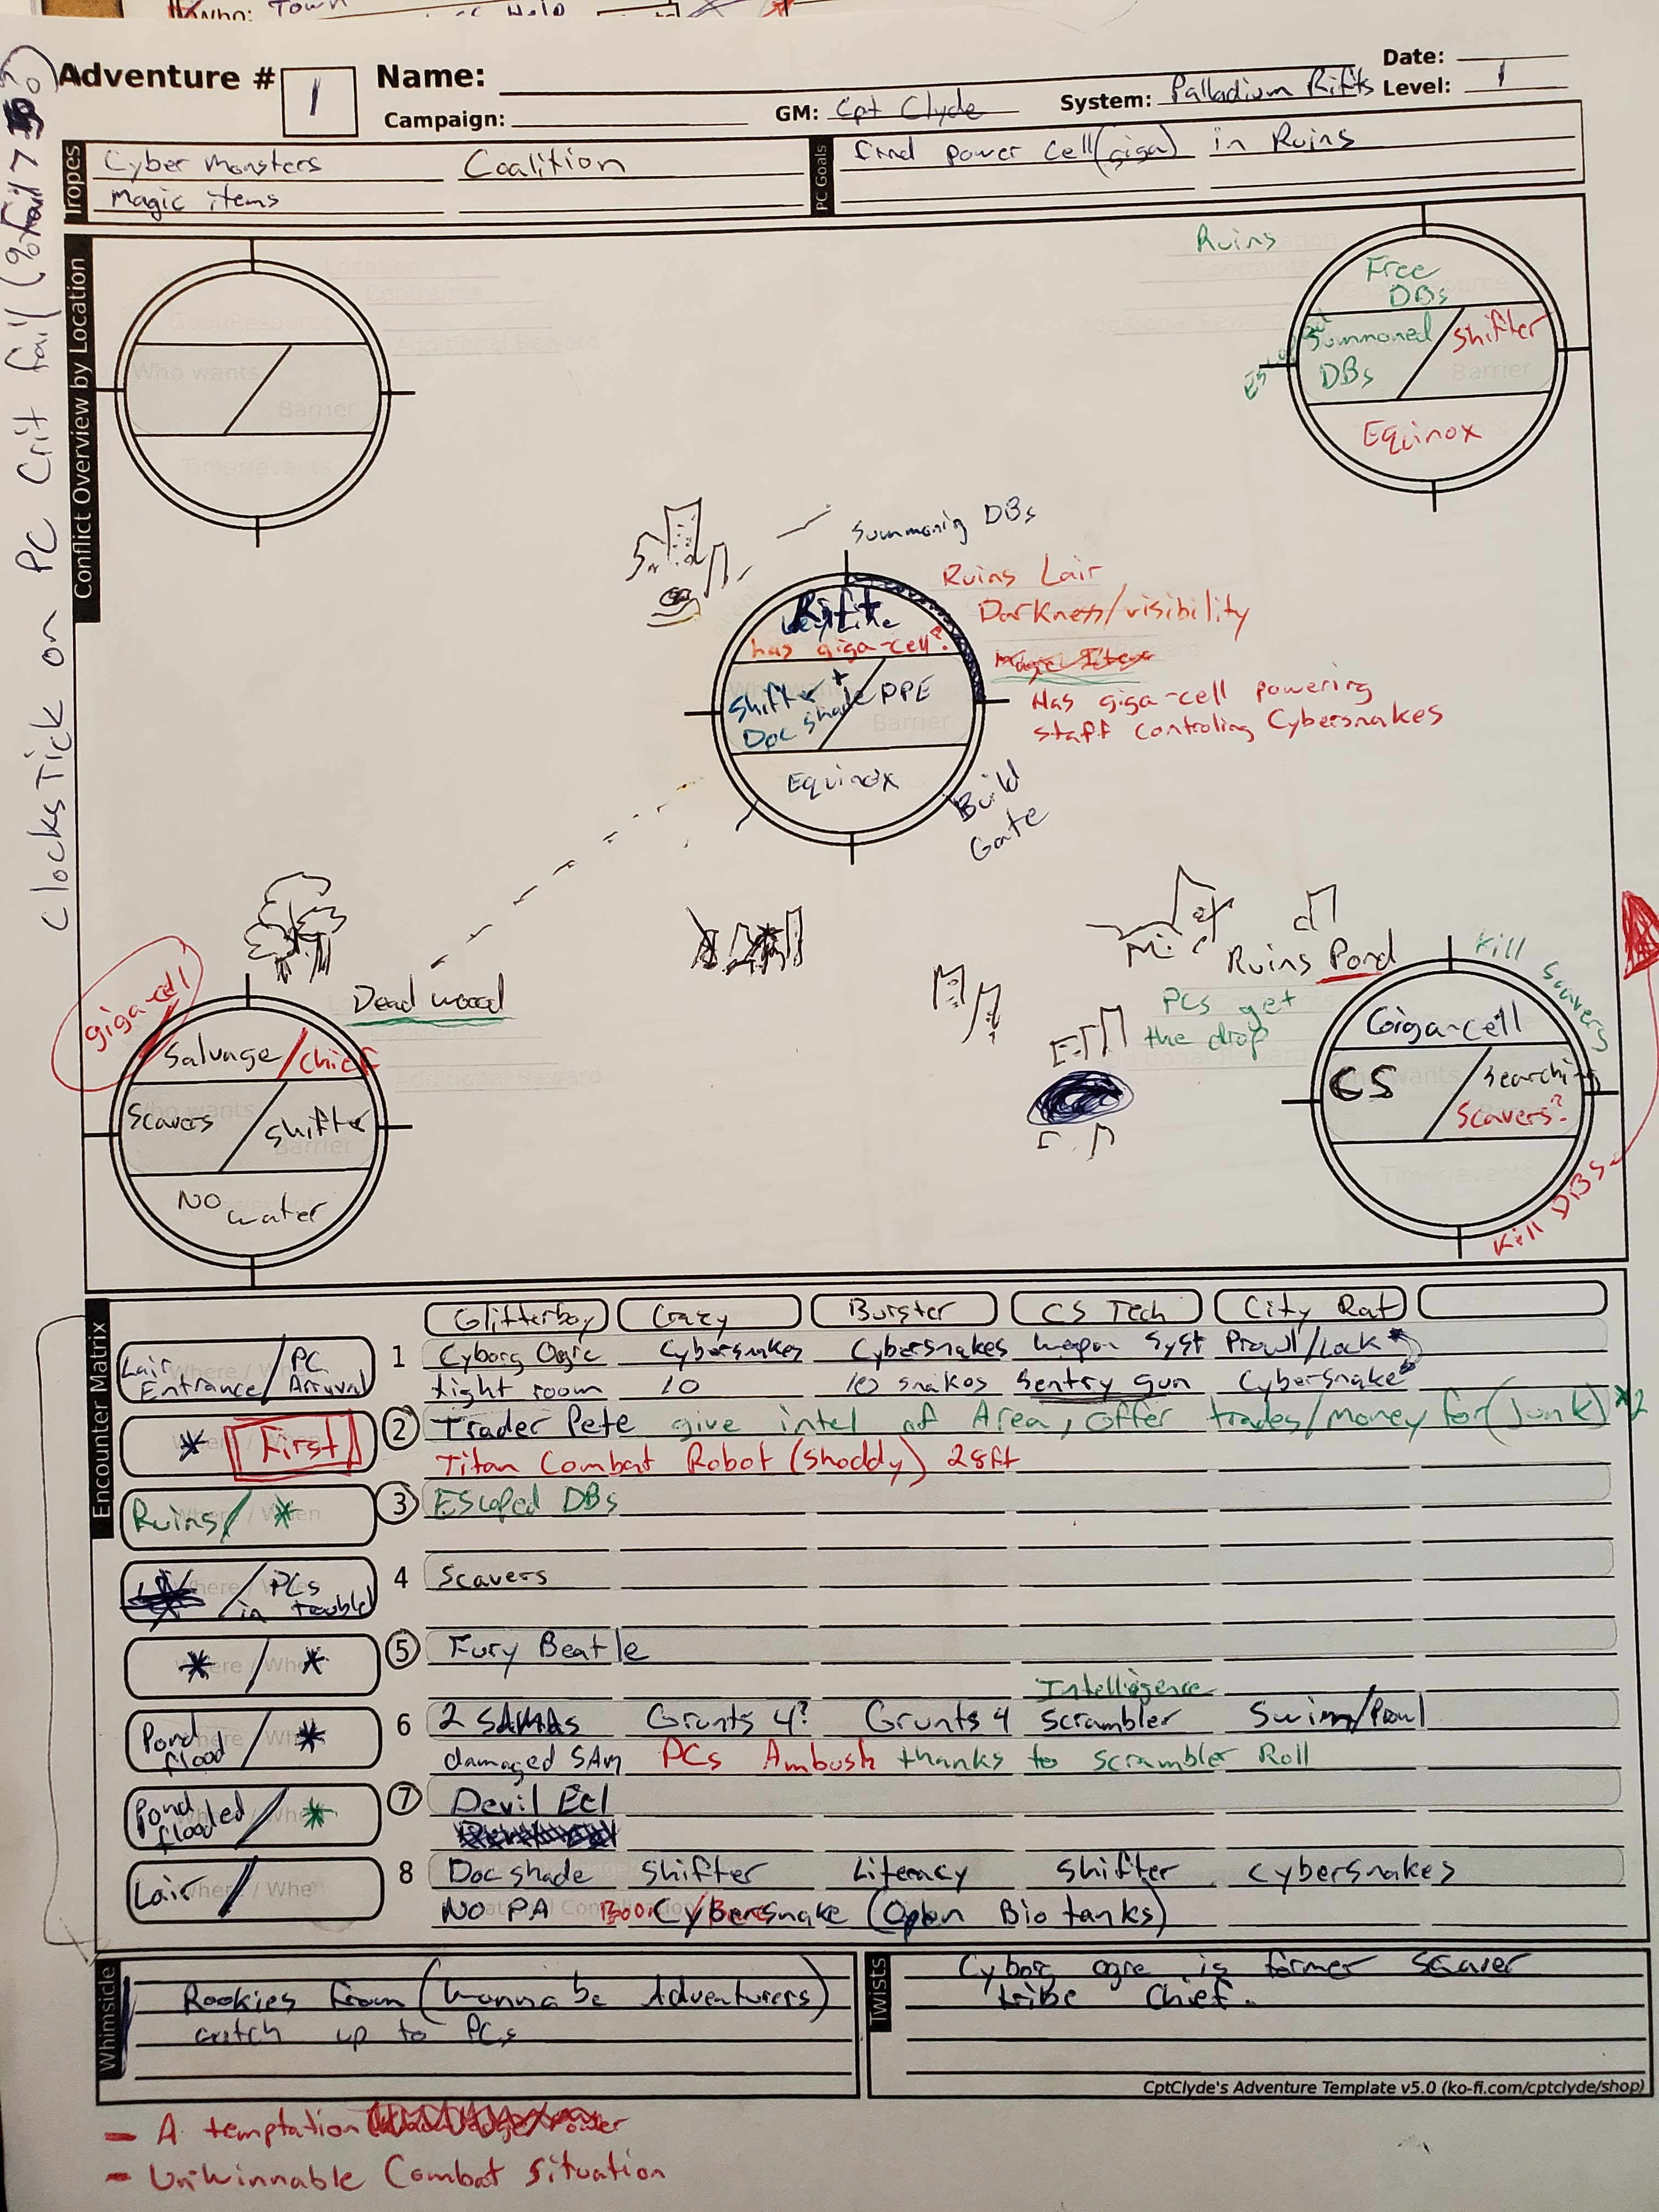 Who: Town
Help
Adventure # 1
Name:
Date:
Campaign:
GM: Cpt Clyde
System: Palladium Rifts
Level: 1
Clocks Tick on PC Crit fail
Tropes
Cyber Monsters
Coalition
Magic items
PC Goals
find power cell (giga) in Ruins
Conflict Overview by Location
Location
Contraints
Goal/Resource
Additional Reward
Who wants
Barrier
Timer/events
Ruins
Free DBs
Summoned DBs
Shifter
Equinox
Summonig DBs
Rift
has giga-cell?
Shifter +
Doc Shade
PPE
Equinox
Build Gate
Ruins Lair
Darkness/visibility
Has giga-cell powering
staff controling Cybersnakes
giga-cell
Dead wood
Salvage / Chief
Scavers
Shifter
No water
Ruins Pond
PCs get
the drop
Kill Scavers
Giga-cell
CS
Searching
Scavers?
Kill DBs
Encounter Matrix
Glitterboy
Crazy
Burster
CS Tech
City Rat
Lair Entrance / PC Arryval
1 Cyborg Ogre Cybersnakes Cybersnakes Weapon Syst Prowl/Lock
tight room 10 10 snakes Sentry gun Cybersnake
* First
2 Trader Pete give intel of Area, offer trades/money for (Junk) *2
Titan Combat Robot (shoddy) 28ft
Ruins / *
3 Escaped DBs
/ PCs in trouble
4 Scavers
* / *
5 Fury Beatle
Intelligence
Pond flood / *
6 2 SAMAs Grunts 4? Grunts 4 Scrambler Swim/Prowl
damaged SAM PCs Ambush thanks to Scrambler Roll
Pond flooded / *
7 Devil Eel
Lair /
8 Doc Shade Shifter Literacy Shifter Cybersnakes
No PA Cybersnake (Open Bio tanks)
Whimsicle
Rookies from (wanna be Adventurers)
catch up to PCs
Twists
Cyborg ogre is former Scaver
tribe Chief.
CptClyde's Adventure Template v5.0 (ko-fi.com/cptclyde/shop)
- A temptation
- Unwinnable Combat Situation